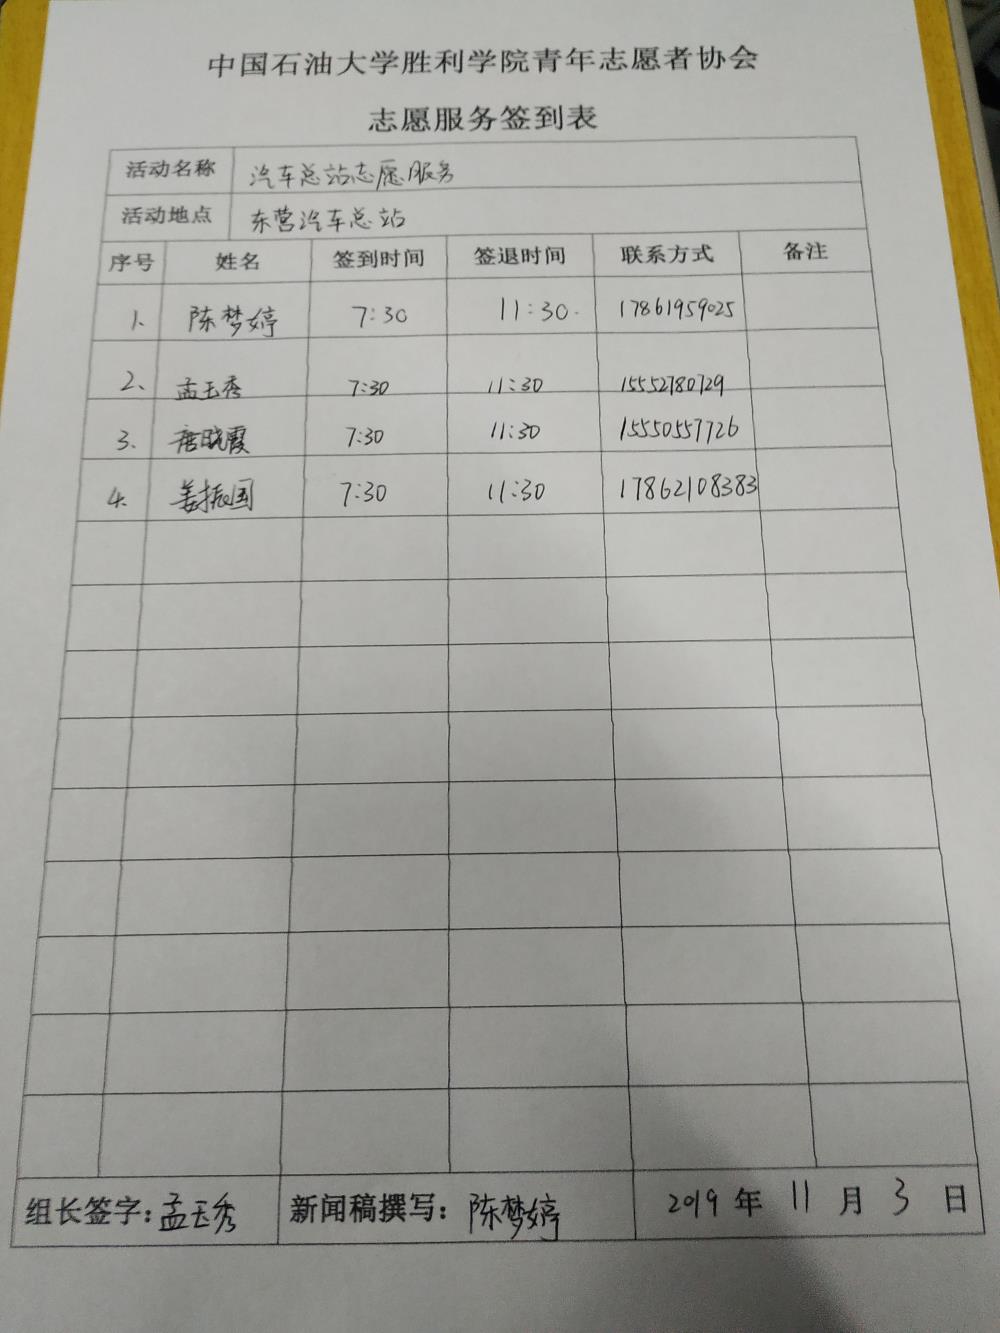 中国石油大学胜利学院青年志愿者协会
志愿服务签到表
活动名称 汽车总站志愿服务
活动地点 东营汽车总站
序号 姓名 签到时间 签退时间 联系方式 备注
1、 陈梦婷 7:30 11:30. 17861959025
2、 孟玉秀 7:30 11:30 15552780729
3、 唐晓霞 7:30 11:30 15550557726
4、 姜振国 7:30 11:30 17862108383
组长签字:孟玉秀 新闻稿撰写:陈梦婷 2019 年 11 月 3 日